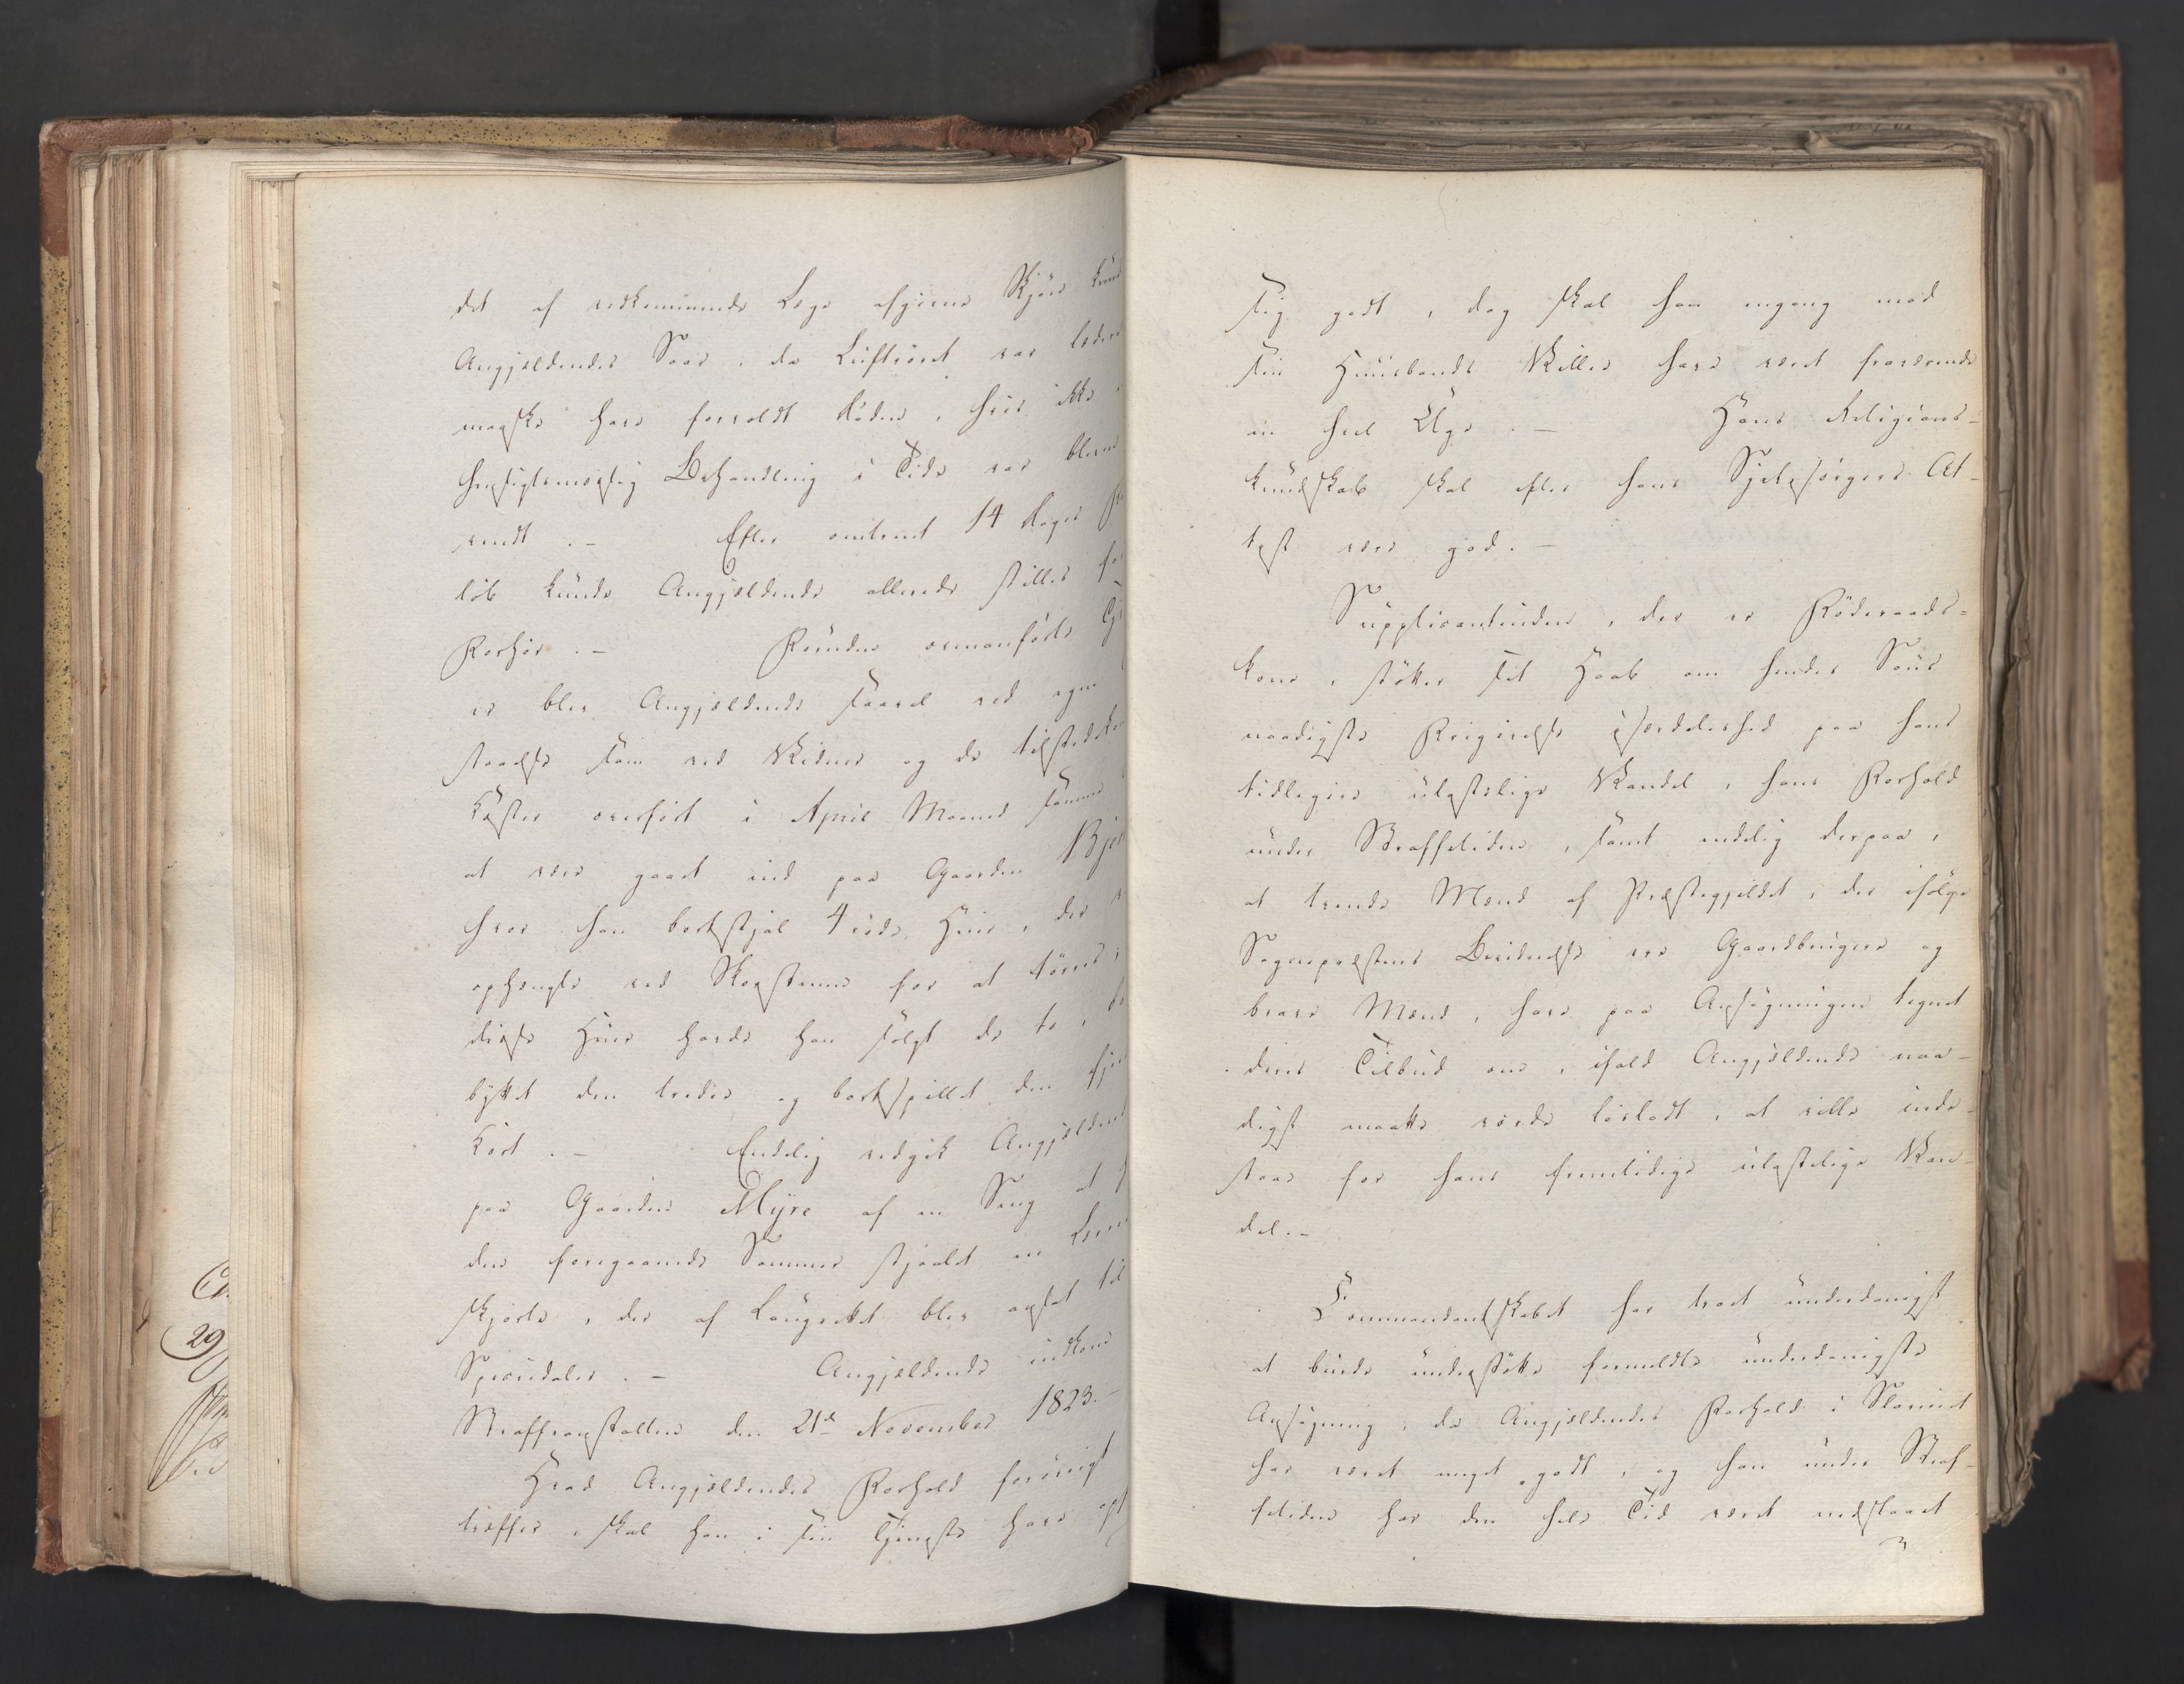 det af vedkommende Læge afgivne Skjøn kunde
Angjeldendes Saar, da Luftröret var læderet
maaske have forvoldt Döden, hvis ikke
hensigtsmæssig Behandling i Tide var bleven
vendt. - Efter omtrent 14 Dages
löb kunde Angjeldende allerede stilles for
Forhör. - Foruden ovenanförte
er blev Angjeldende saavel ved egen
staaelse som ved Vidner og de tilstedekomne
Koster overført i April Maaned samme
at være gaaet ind paa Gaarden Bjer
hvor han bortstjal 4 röde Huer, der
ophængte ved Skorstenen for at törres;
disse Huer havde han solgt de to,
byttet den tredie og bortspillet den fjerde
Kort. - Endelig vedgik Angjeldende
paa Gaarden Myre af en Seng at
den foregaaende Sommer stjaalet en
Skjorte, der af Laugrettet blev ansat til
Speciedaler. - Angjeldende indkom
Straffeanstalten den 21de November 1823. -
Hvad Angjeldendes Forhold forövrigt
træffer, skal han i sin Tjeneste have opf
sig godt, dog skal han engang mod
sin Huusbonds Villie have været fraværende
en heel Uge. - Hans Religions-
kundskab skal efter hans Sjelesörgers At-
test være god. -
Supplicantinden, der er Föderaads-
kone, stötter sit Haab om hendes Söns
naadigste Frigivelse i særdeleshed paa hans
tidligere ulastelige Vandel, hans Forhold
under Straffetiden, samt endelig derpaa,
at trende Mænd af Præstegjeldet, der ifölge
Sognepræstens Bevidnelse ere Gaardbrugere og
brave Mænd, have paa Ansögningen tegnet
deres Tilbud om, ifald Angjeldende naa-
digst maatte vorde lösladt, at ville inde-
staae for hans fremtidige ulastelige Van-
del. -
Commandantskabet har troet underdanigst
at burde understötte formeldte underdanigste
Ansögning, da Angjeldendes Forhold i Slaveriet
har været meget godt, og han under Straf-
fetiden har den hele Tid været nedslaaet
29